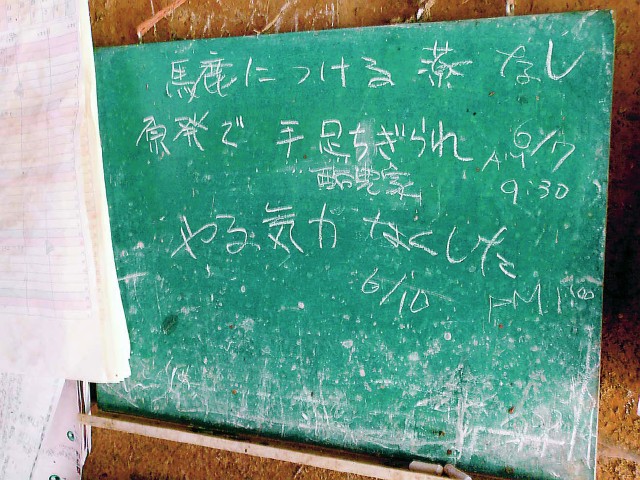 馬鹿につける薬なし
原発で手足ちぎられ
酪農家
6/7
AM
9:30
やる気力なくした
6/10 PM 1:00